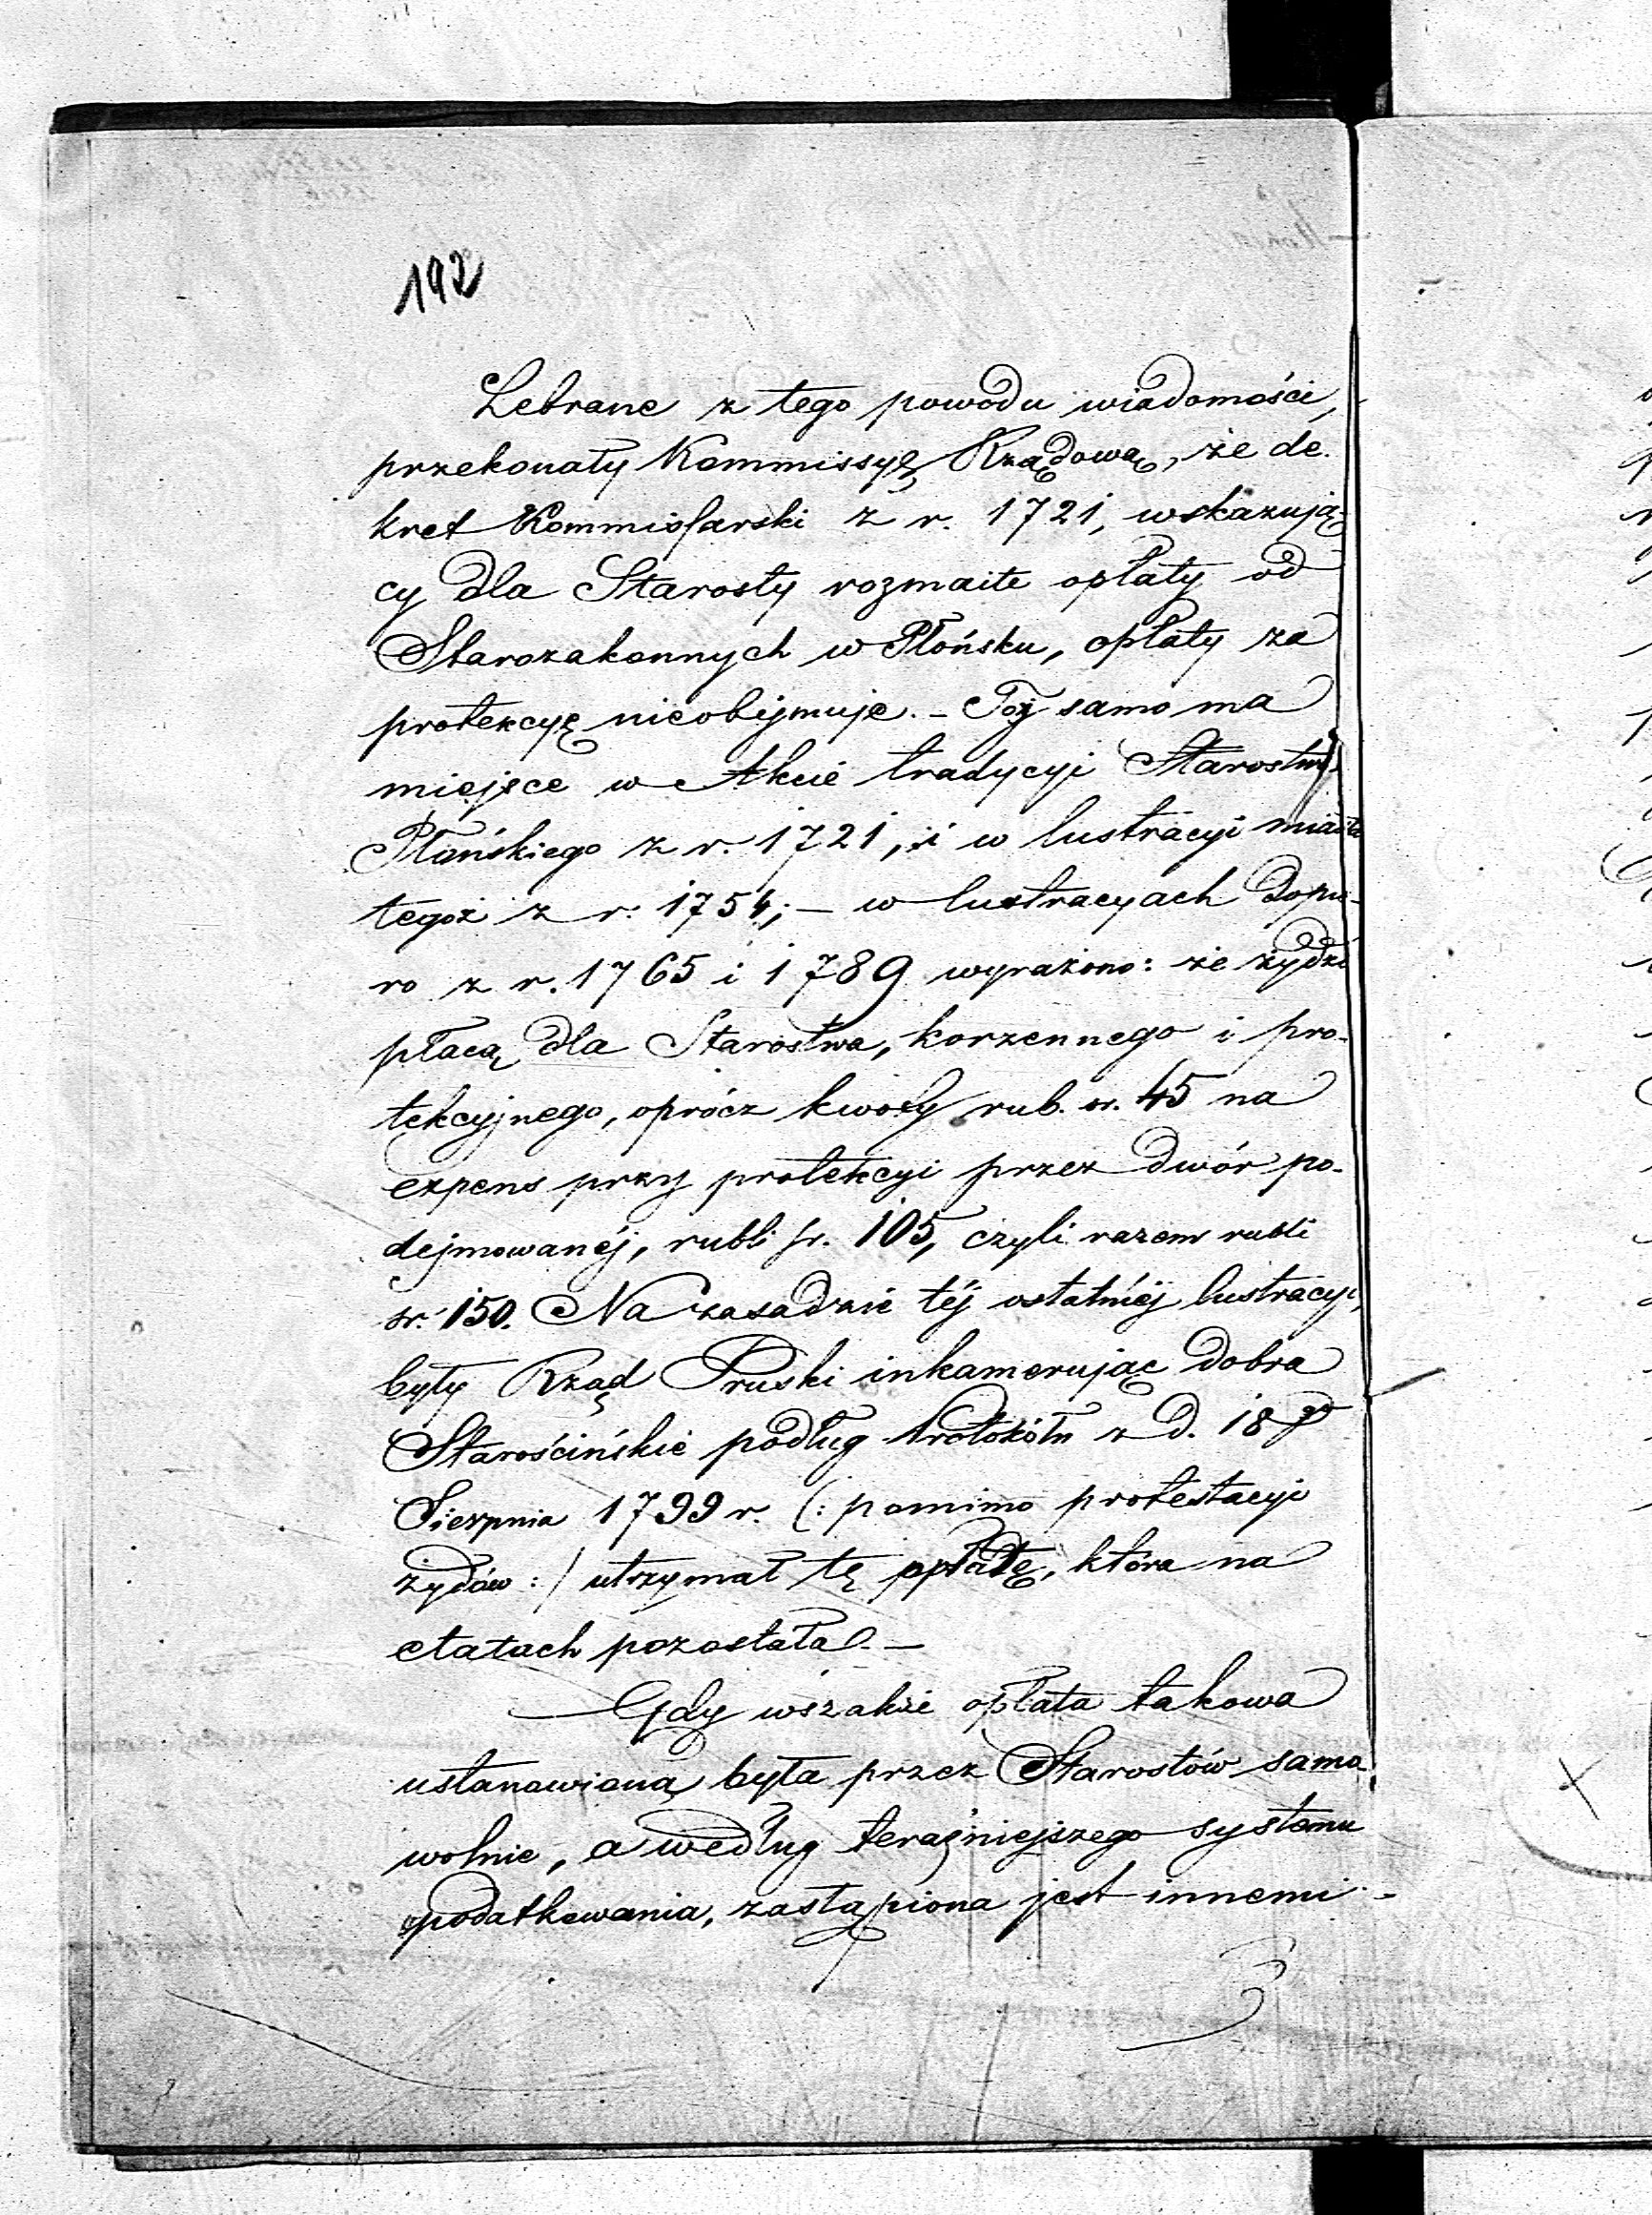 192
Zebrane z tego powodu wiadomości,
przekonały Kommissyę Rządową, że de-
kret Kommissarski z r. 1721, wskazują-
cy dla Starosty rozmaite opłaty od
Starozakonnych w Płońsku, opłaty za
protekcyę nieobejmuje. – Toż samo ma
miejsce w Akcie tradycyi Starostwa
Płońskiego z r. 1721, i w lustracyi miasta
tegoż z r. 1754; – w lustracyach dopie-
ro z r. 1765 i 1789 wyrażono: że żydzi
płacą dla Starostwa, korzennego i pro-
tekcyjnego, oprócz kwoty rub. sr. 45 na
expens przy protekcyi przez dwór po-
dejmowanéj, rubli sr. 105, czyli razem rubli
sr. 150. Na zasadzie téj ostatniéj lustracyi,
były Rząd Pruski inkamerując dobra
Starościńskie podług Protokółu z d. 18
Sierpnia 1799 r. (: pomimo protestacyi
żydów :) utrzymał tę opłatę, która na
etatach pozostała. –
Gdy wszakże opłata takowa
ustanowioną była przez Starostów samo-
wolnie, a według teraźniejszego systemu
podatkowania, zastąpiona jest innemi